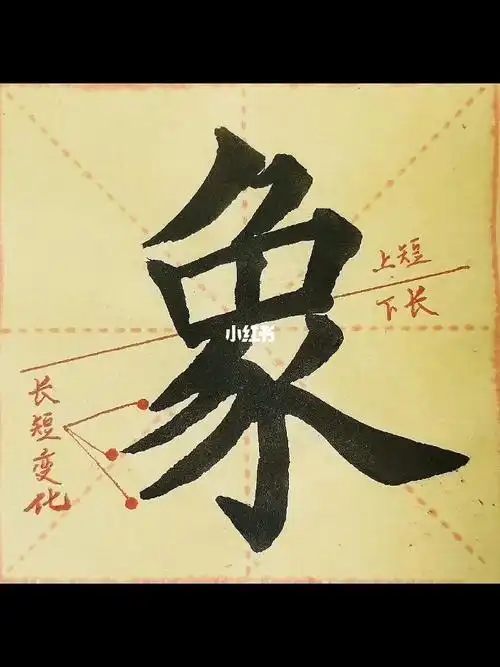 象
上短
下长
小红书
长短变化